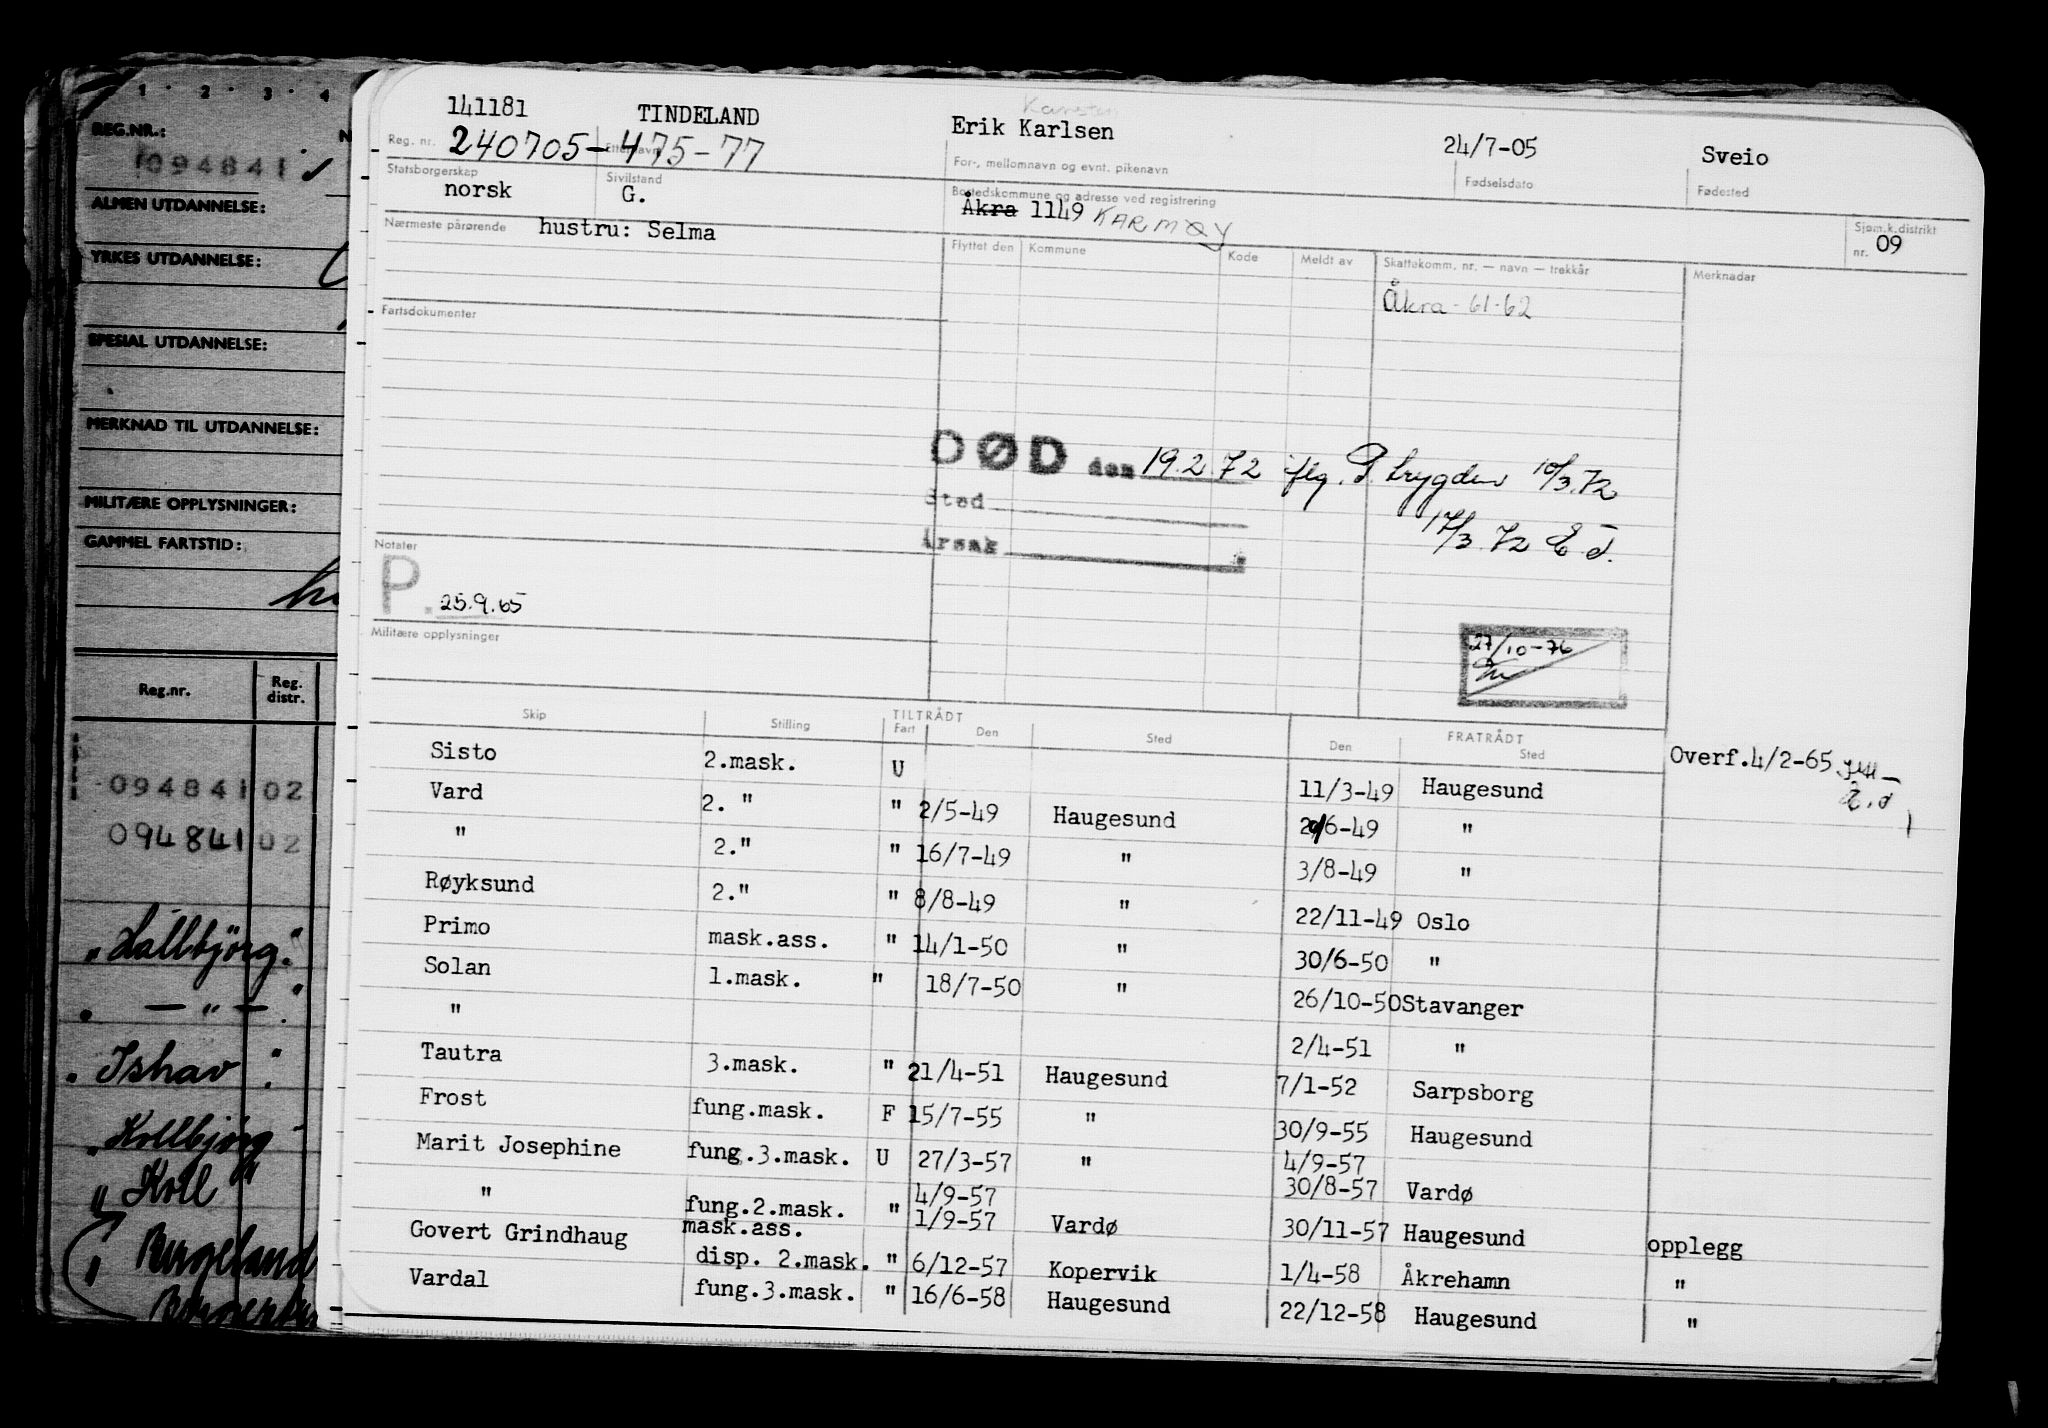 1 · 2 · 3 · 4
REG.NR.:
094841
ALMEN UTDANNELSE:
YRKES UTDANNELSE:
SPESIAL UTDANNELSE:
MERKNAD TIL UTDANNELSE:
MILITÆRE OPPLYSNINGER:
GAMMEL FARTSTID:
Reg.nr. Reg. distr.
094841 02
094841 02
"Hallbjörg"
" — " — "
"Ishav"
"Kollbjörg"
"Koll"
141181 TINDELAND Karsten
Erik Karlsen 24/7-05 Sveio
Reg. nr. 240705-475-77 Etternavn For-, mellomnavn og evnt. pikenavn Fødselsdato Fødested
Statsborgerskap Sivilstand Bostedskommune og adresse ved registrering
norsk G. Åkra 1149 KARMØY
Nærmeste pårørende hustru: Selma Sjøm.k.distrikt nr. 09
Flyttet den Kommune Kode Meldt av Skattekomm. nr. — navn — trekkår Merknader
Åkra - 61-62
Fartsdokumenter
DØD den 19.2.72 iflg. P. trygden 10/3.72
Sted 17/3.72 E.d.
Årsak
Notater
P. 25.9.65
Militære opplysninger
27/10-76
Skip Stilling TILTRÅDT Fart Den Sted FRATRÅDT Den Sted
Sisto 2.mask. U 11/3-49 Haugesund Overf.4/2-65
Vard 2. " " 2/5-49 Haugesund 29/6-49 "
" 2." " 16/7-49 " 3/8-49 "
Røyksund 2." " 8/8-49 " 22/11-49 Oslo
Primo mask.ass. " 14/1-50 " 30/6-50 "
Solan 1.mask. " 18/7-50 " 26/10-50 Stavanger
" 2/4-51 "
Tautra 3.mask. " 21/4-51 Haugesund 7/1-52 Sarpsborg
Frost fung.mask. F 15/7-55 " 30/9-55 Haugesund
Marit Josephine fung.3.mask. U 27/3-57 " 4/9-57
30/8-57 Vardø
" fung.2.mask. " 4/9-57
1/9-57 Vardø 30/11-57 Haugesund opplegg
Govert Grindhaug mask.ass.
disp. 2.mask. " 6/12-57 Kopervik 1/4-58 Åkrehamn "
Vardal fung.3.mask. " 16/6-58 Haugesund 22/12-58 Haugesund "